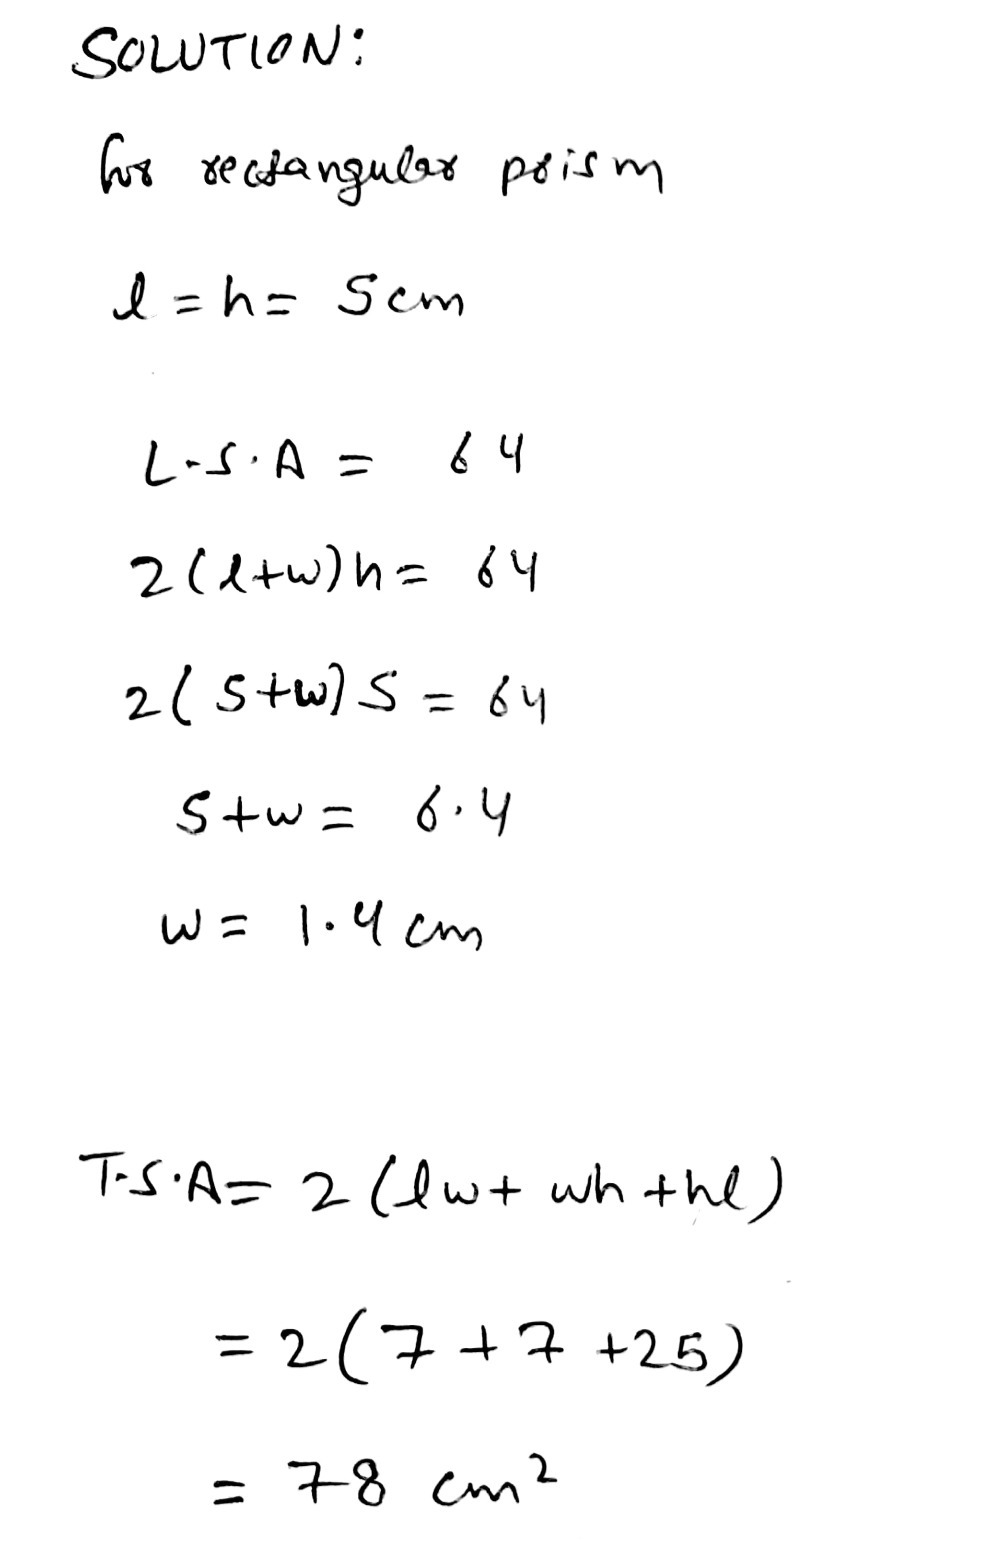 SOLUTION:
for rectangular prism
l = h = 5 cm
L.S.A = 64
2(l+w)h = 64
2(5+w)5 = 64
5+w = 6.4
w = 1.4 cm
T.S.A = 2(lw + wh + hl)
= 2(7+7+25)
= 78 cm²